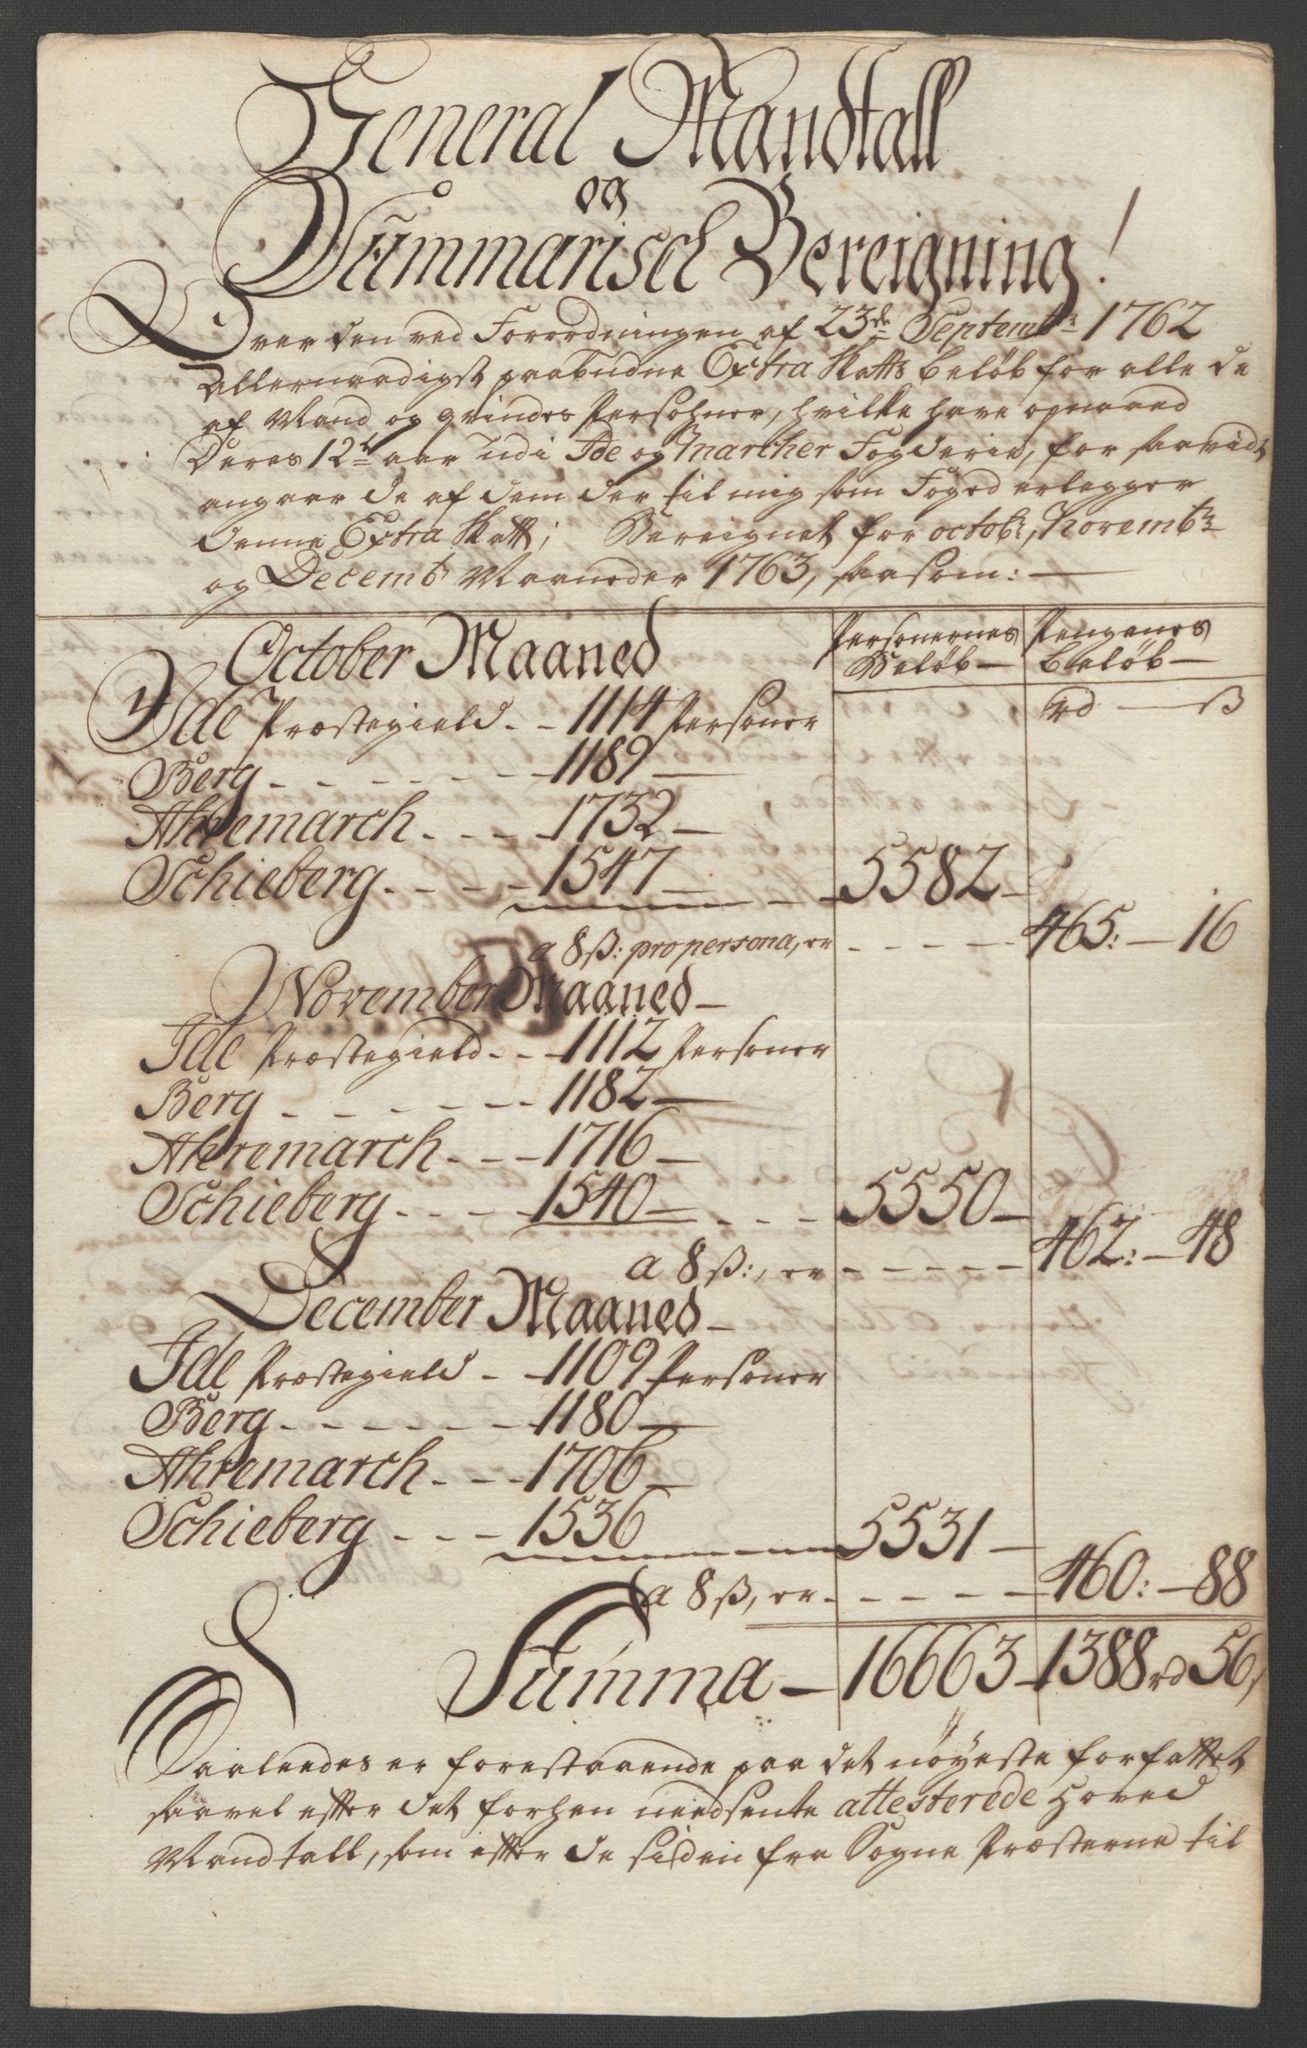 General Mandtall
og
Summarisch Bereigning!
Over den ved Forordningen af 23de Septembr 1762
Allernaadigst paabudne Extra Skatts beløb for alle de
af Mand og qvindes Persohner, hvilke have opnaaed
Deres 12te aar udi Ide og Marcher Fogderie, for saavidt
angaar de af dem der til mig som Foged erlegger
denne Extra Skatt; Bereignet for octobr, Novembr
og Decembr Maaneder 1763, saasom:
October Maaned
Personernes Beløb Pengenes beløb
rd ß
Ide Præstegield 1114 Personer
Berg 1189
Ahremarch 1732
Schieberg 1547 5582
a 8 ß: pro persona, er 465: 16
November Maaned
Ide Præstegield 1112 Personer
Berg 1182
Ahremarch 1716
Schieberg 1540 5550
a 8 ß:, er 462: 48
December Maaned
Ide Præstegield 1109 Personer
Berg 1180
Ahremarch 1706
Schieberg 1536 5531
a 8 ß, er 460: 88
Summa 16663 1388 rd 56
Saaleedes er forestaaende paa det nøyeste forfattet
saavel efter det forhen needsente attesterede Hoved
Mandtall, som efter de siden fra Sogne Præsterne til